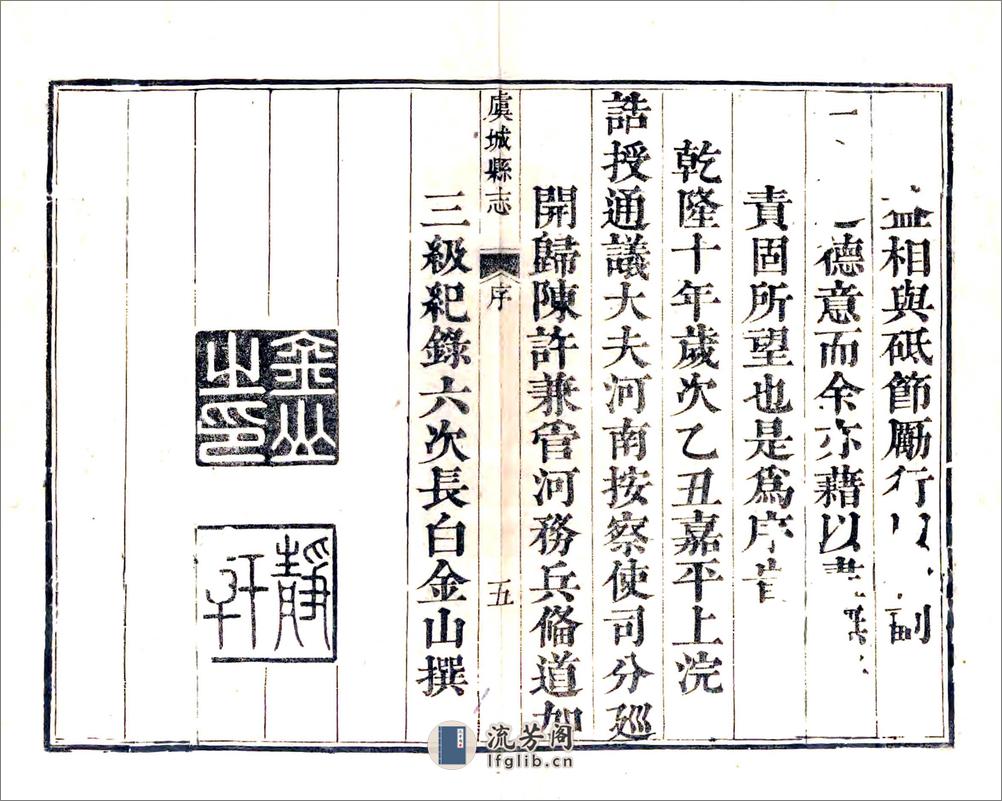 益相與砥節勵行以副
德意而余亦藉以
責固所望也是為序旹
乾隆十年歲次乙丑嘉平上浣
誥授通議大夫河南按察使司分廵
開歸陳許兼管河務兵備道加
虞城縣志 序 五
三級紀錄六次長白金山撰
金山之印
靜
流芳阁
lfglib.cn